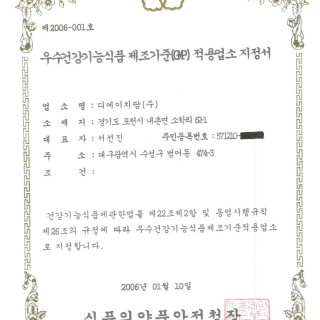 제2006-001호
우수건강기능식품 제조기준(GMP) 적용업소 지정서
업 소 명 : 디에이치팜(주)
소 재 지 : 경기도 포천시 내촌면 소학리 62-1
대 표 자 : 서선진 주민등록번호 : 571210-
주 소 : 대구광역시 수성구 범어동 474-3
조 건 :
건강기능식품에관한법률 제22조제2항 및 동법시행규칙
제26조의 규정에 따라 우수건강기능식품제조기준적용업소
로 지정합니다.
2006년 01월 10일
식품의약품안전청장